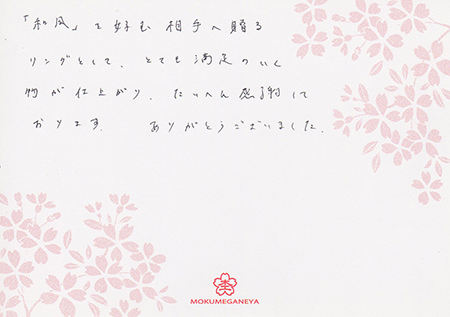 「和風」を好む相手へ贈る
リングとして、とても満足のいく
物が仕上がり、たいへん感謝して
おります。 ありがとうございました。
MOKUMEGANEYA